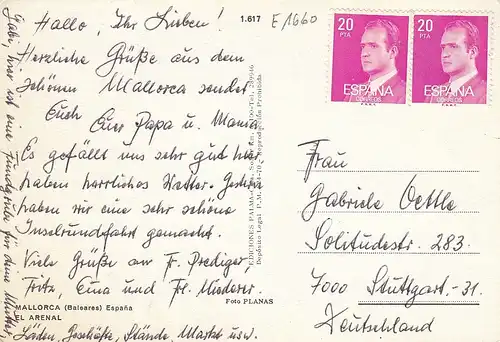 Hallo, Ihr Lieben!
Herzliche Grüße aus dem
schönen Mallorca sendet
Euch
Euer Papa u. Mama.
Es gefällt uns sehr gut hier
haben herrliches Wetter. Gestern
haben wir eine sehr schöne
Inselrundfahrt gemacht.
Viele Grüße am Fr. Prediger,
Fritz, Lina und Frl. Niederer.
Gabi, hier ist eine Fundgrube für deine Mutter,
Läden, Geschäfte, Stände, Markt usw.
MALLORCA (Baleares) España
EL ARENAL
Foto PLANAS
EDICIONES PALMA
Depósito Legal P.M. Reproducción Prohibida
1.617
E/1660
20
PTA
ESPAÑA
CORREOS
20
PTA
ESPAÑA
CORREOS
Frau
Gabriele Oettle
Solitudestr. 283
7000 Stuttgart-31
Deutschland